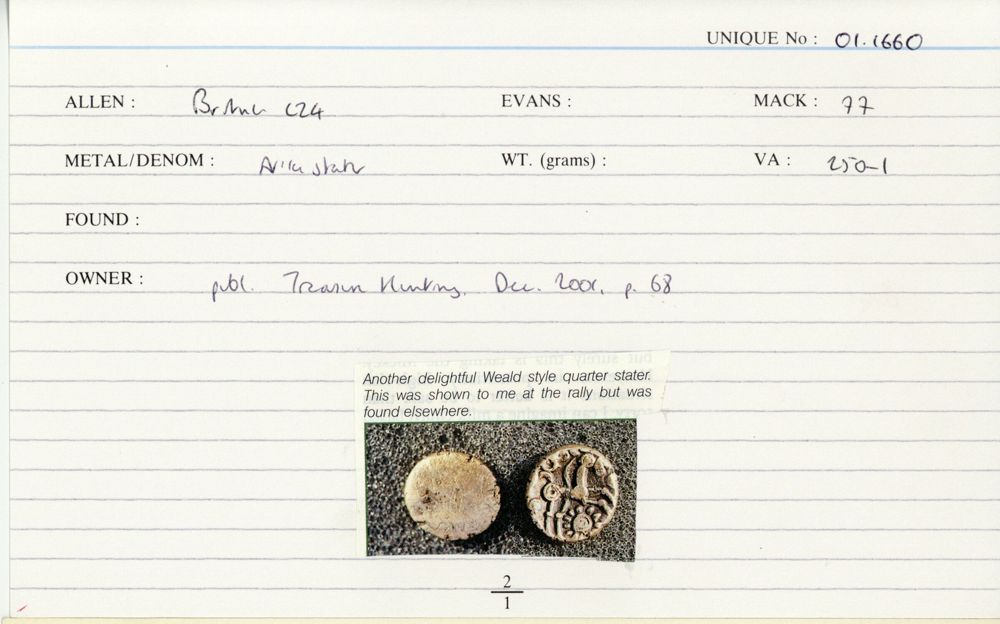 UNIQUE No : 01.1660
ALLEN : British L24 EVANS : MACK : 77
METAL/DENOM : AV 1/4 stater WT. (grams) : VA : 250-1
FOUND :
OWNER : publ. Treasure Hunting, Dec. 2001, p. 68
Another delightful Weald style quarter stater.
This was shown to me at the rally but was
found elsewhere.
2
1